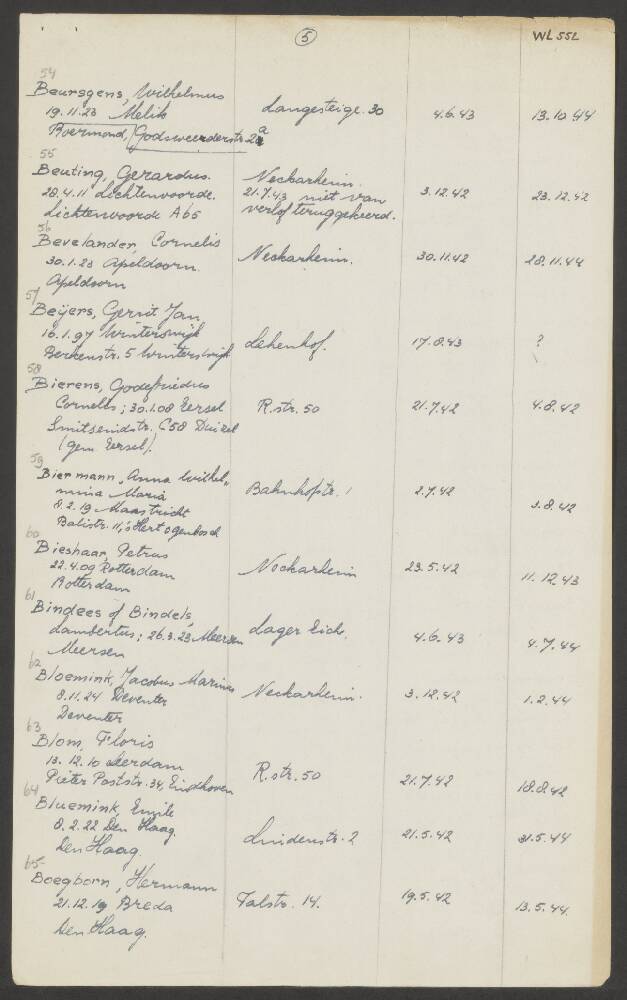 5
WL 55L
54
Beursgens, Wilhelmus
19.11.23 Melik Langesteige 30 4.6.43 13.10.44
Roermond, Godsweerderstr. 2a
55
Beuting, Gerardus. Neckarheim.
28.4.11 Lichtenvoorde. 21.7.43 niet van 3.12.42 23.12.42
Lichtenvoorde A65 verlof teruggekeerd.
56
Bevelander, Cornelis
30.1.23 Apeldoorn. Neckarheim. 30.11.42 28.11.44
Apeldoorn
57
Beijers, Gerrit Jan
16.1.97 Winterswijk Lehenhof. 17.8.43 ?
Berkenstr. 5 Winterswijk
58
Bierens, Godefriedus
Cornelis; 30.1.08 Eersel R.str. 50 21.7.42 4.8.42
C58 Duizel
(gem. Eersel).
59
Biermann, Anna Wilhel-
mina Maria Bahnhofstr. 1 2.7.42
8.2.19 Maastricht 3.8.42
11, 's Hertogenbosch
60
Bieshaar, Petrus
22.4.09 Rotterdam Neckarheim 23.5.42 11.12.43
Rotterdam
61
Bindees of Bindels,
Lambertus; 26.3.23 Meersen Lager Eich. 4.6.43 4.7.44
Meersen
62
Bloemink, Jacobus Marinus
8.11.24 Deventer Neckarheim. 3.12.42 1.2.44
Deventer
63
Blom, Floris
13.12.10 Leerdam R.str. 50 21.7.42 18.8.42
Pieter Poststr. 34, Eindhoven
64
Bluemink, Emile
8.2.22 Den Haag. Lindenstr. 2 21.5.42 31.5.44
Den Haag.
65
Boegborn, Hermann
21.12.19 Breda Talstr. 14. 19.5.42 13.5.44
Den Haag.